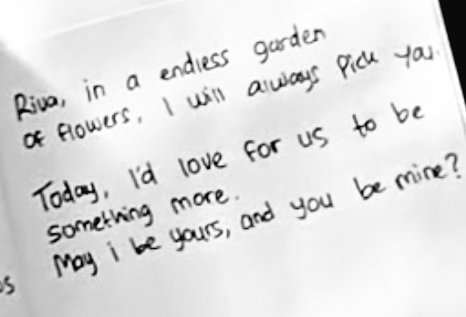 Riva, in a endless garden
of flowers, I will always pick you.
Today, I'd love for us to be
something more.
May i be yours, and you be mine?